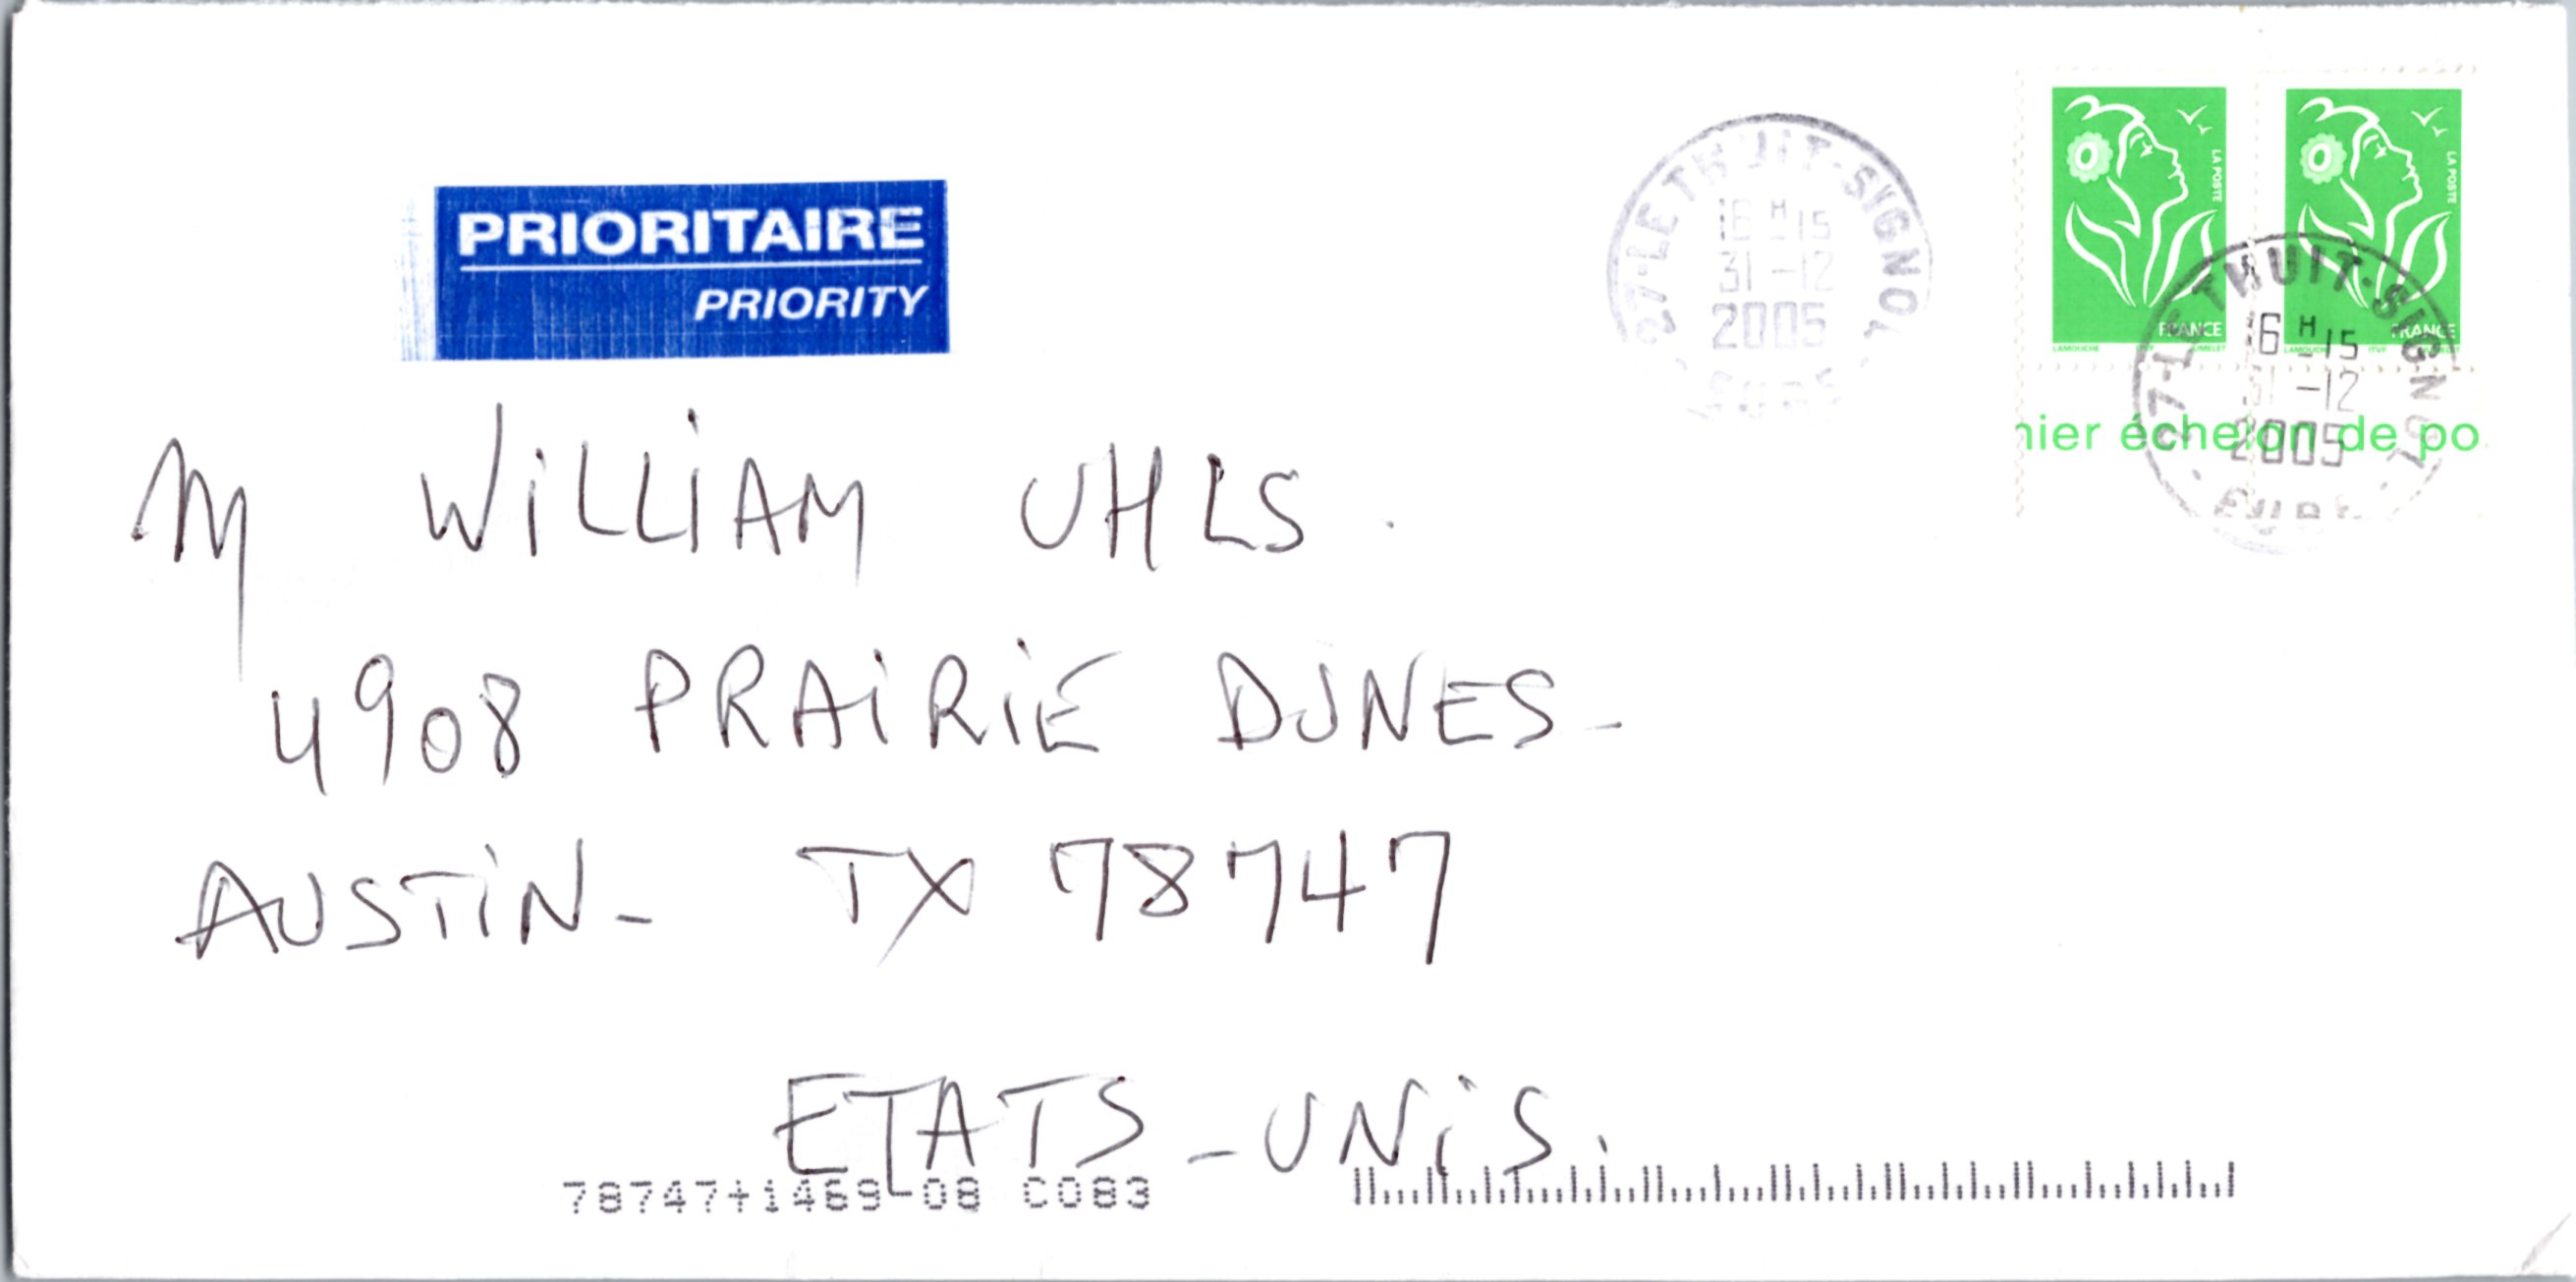 PRIORITAIRE
PRIORITY
27-LE THUIT-SIGNOL
16 H 15
31 -12
2005
EURE
LA POSTE
FRANCE
LAMOUCHE ITVF JUMELET
LA POSTE
FRANCE
LAMOUCHE ITVF
27-LE THUIT-SIGNOL
16 H 15
31 -12
2005
EURE
nier échelon de po
M WiLLiAM UHLS.
4908 PRAiRiE DUNES-
AUSTiN- TX 78747
ETATS-UNiS.
78747+1469-08 C083